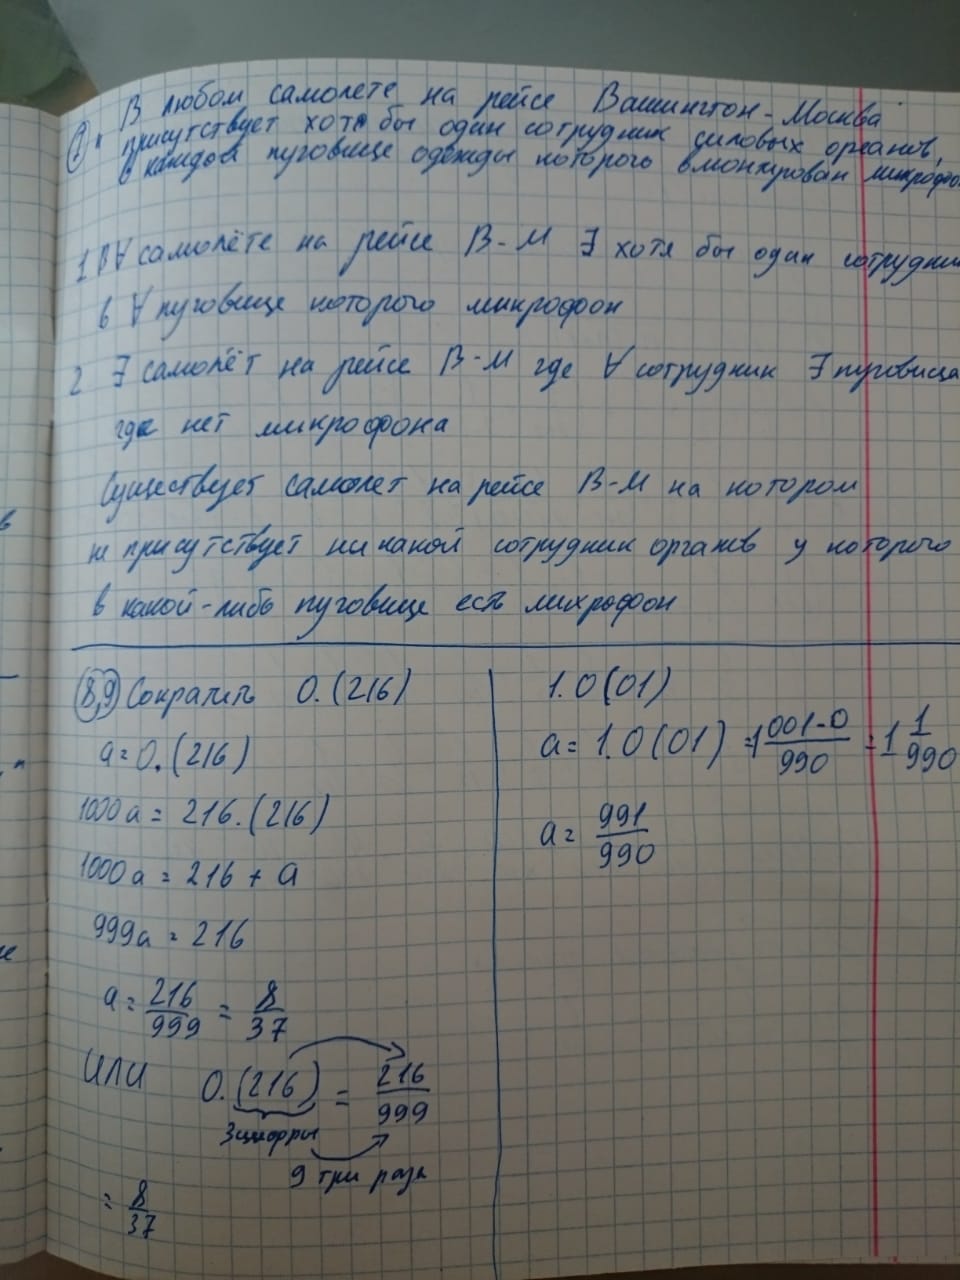 В любом самолете на рейсе Вашингтон-Москва
7 " присутствует хотя бы один сотрудник силовых органов,
в каждой пуговице одежды которого вмонтирован микрофон
1 В ∀ самолёте на рейсе В-М ∃ хотя бы один сотрудник
в ∀ пуговице которого микрофон
2 ∃ самолёт на рейсе В-М где ∀ сотрудник ∃ пуговица
где нет микрофона
Существует самолет на рейсе В-М на котором
не присутствует никакой сотрудник органов у которого
в какой-либо пуговице есть микрофон
8,9 Сократить 0.(216)
a = 0.(216)
1000a = 216.(216)
1000a = 216 + a
999a = 216
a = 216/999 = 8/37
или 0.(216) = 216/999
3 цифры
9 три раза
= 8/37
1.0(01)
a = 1.0(01) = 1 001-0/990 = 1 1/990
a = 991/990